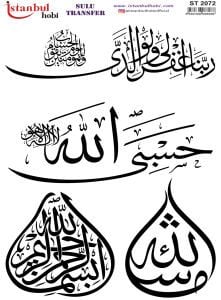 istanbul hobi
SULU TRANSFER
www.istanbulhobi.com
ST 2072
ربنا اغفر لي ولوالدي
وللمؤمنين يوم يقوم الحساب
حسبي الله
بسم الله الرحمن الرحيم